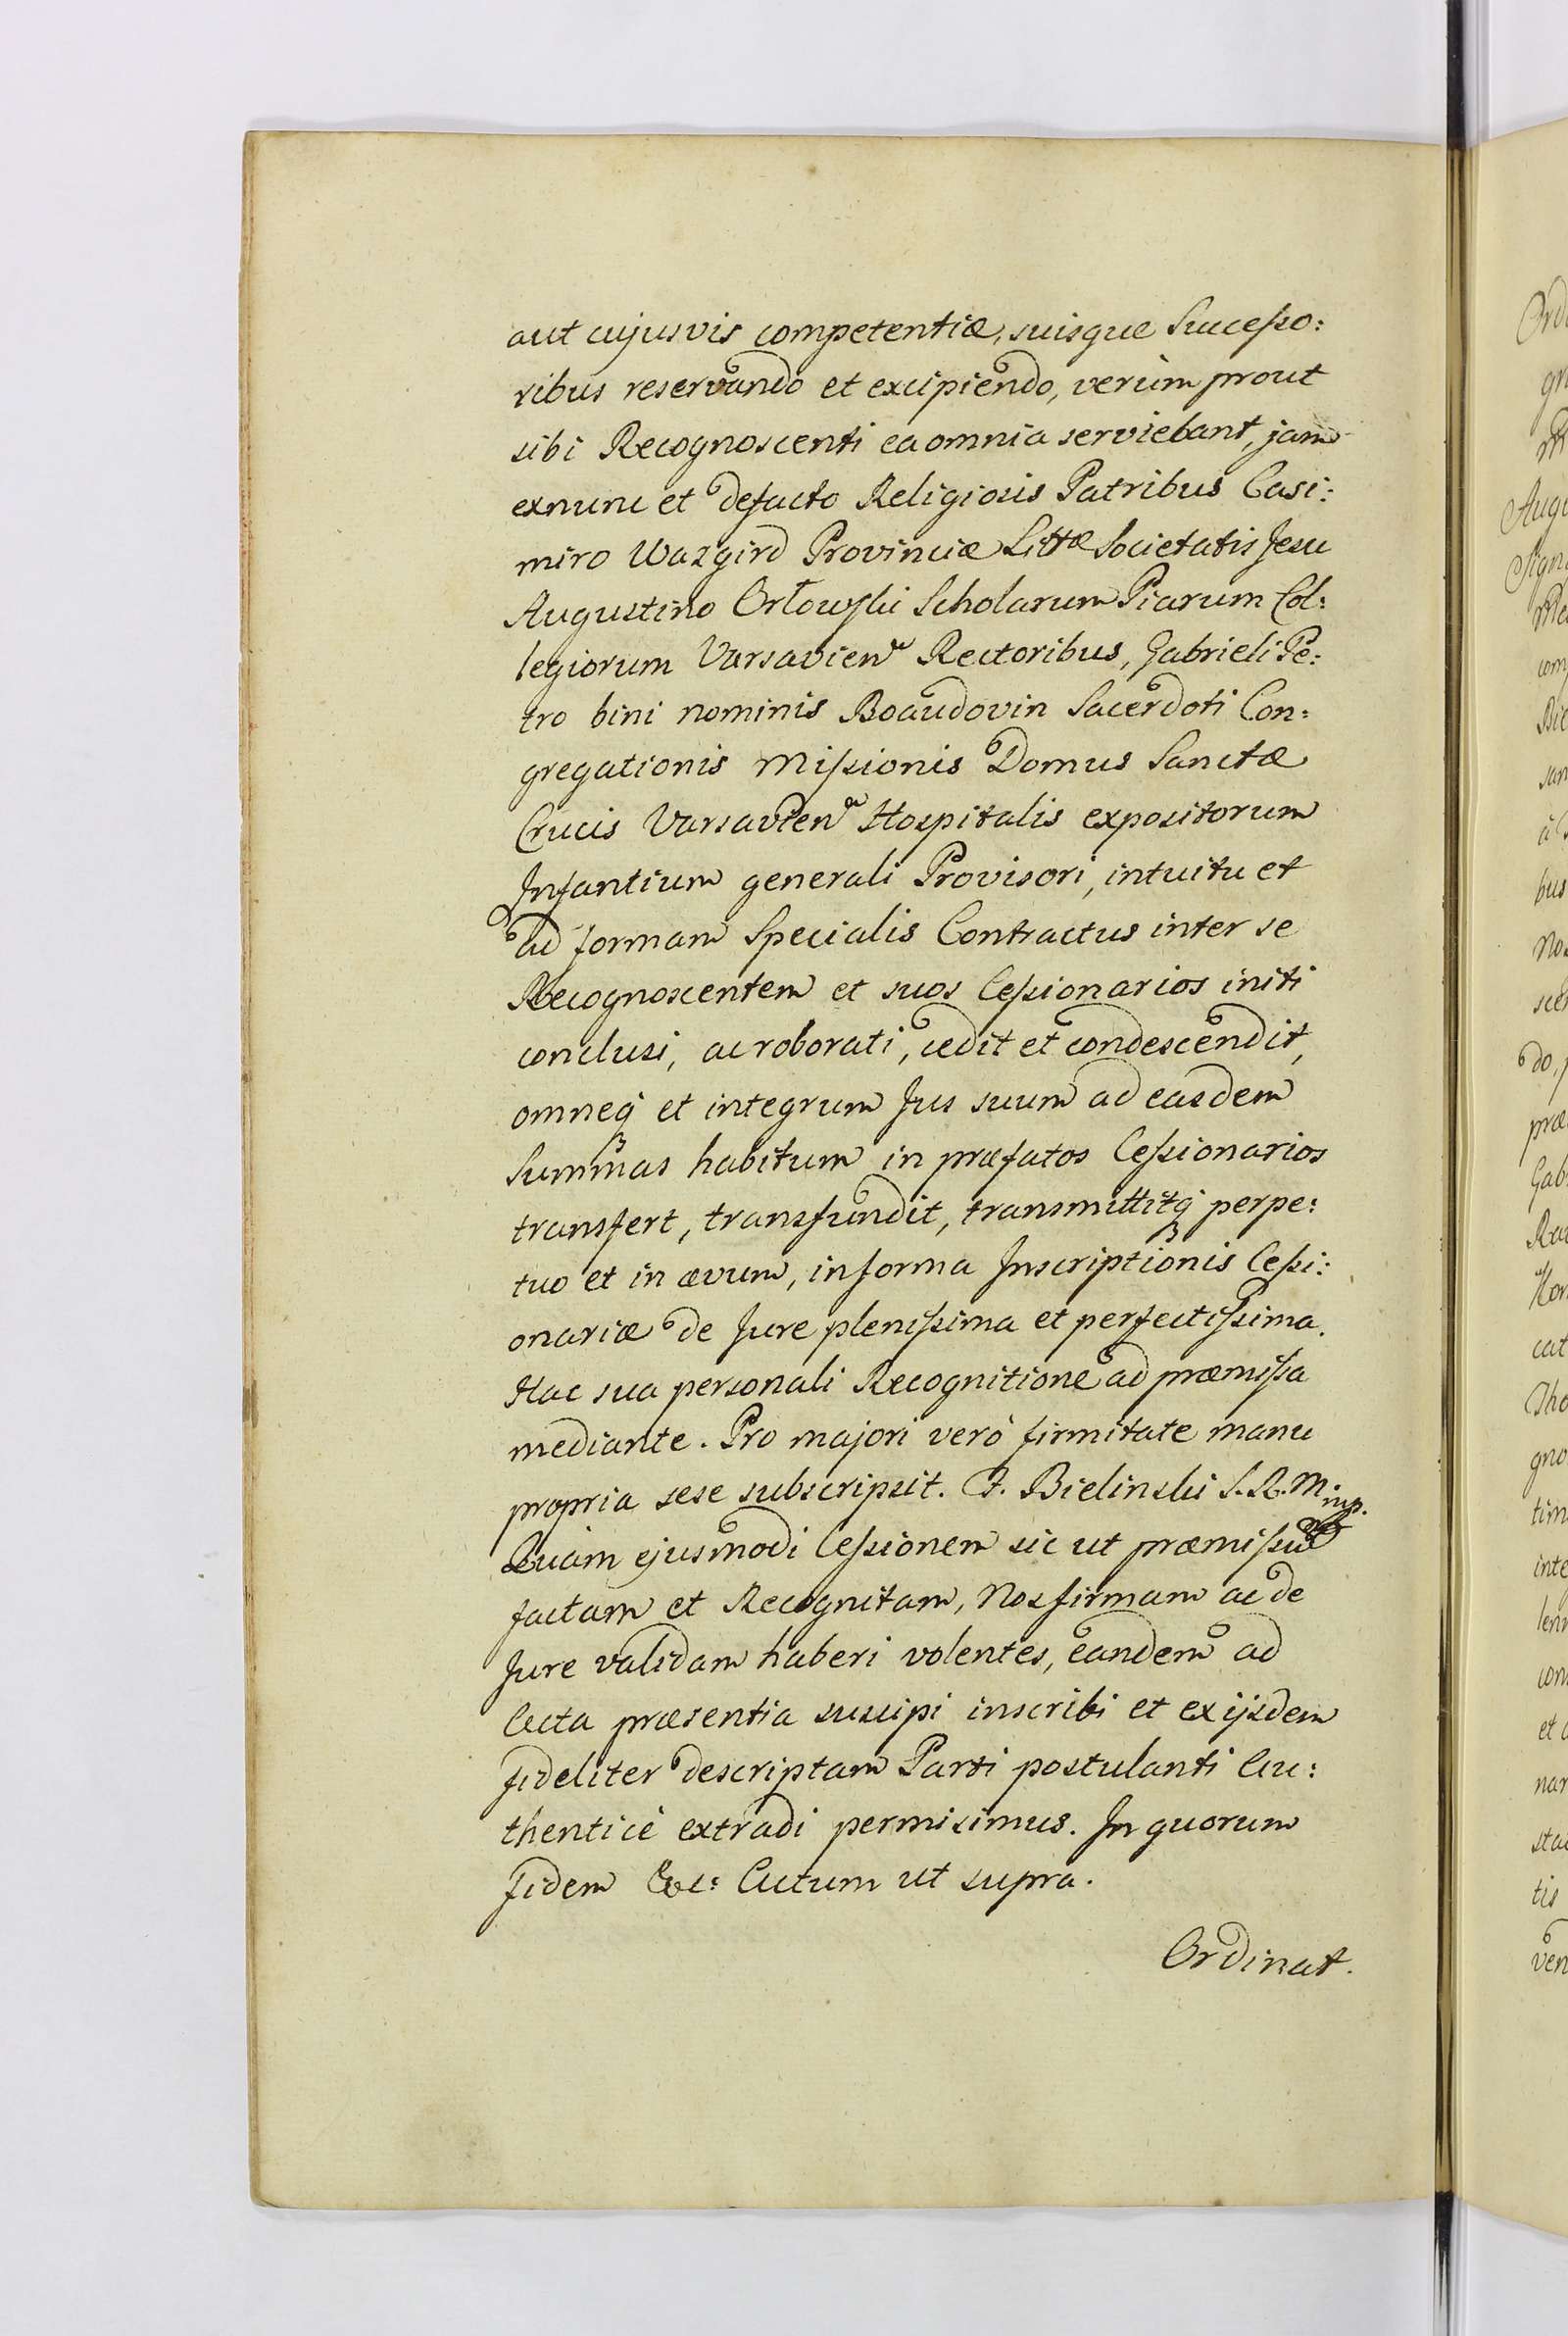 aut cujusvis competentiæ, suisque Successo:
ribus reservando et excipiendo, verùm prout
sibi Recognoscenti ea omnia serviebant, jam
exnunc et defacto Religiosis Patribus Casi:
miro Wazgird Provinciæ Littæ Societatis Jesu
Augustino Orłowski Scholarum Piarum Col:
legiorum Varsavien Rectoribus, Gabrieli Pe:
tro bini nominis Boaudovin Sacerdoti Con:
gregationis Missionis Domus Sanctæ
Crucis Varsavien Hospitalis expositorum
Infantium generali Provisori, intuitu et
ad formam Specialis Contractus inter se
Recognoscentem et suos Cessionarios initi
conclusi, ac roborati, cedit et condescendit,
omneq et integrum Jus suum ad easdem
Summas habitum in præfatos Cessionarios
transfert, transfundit, transmittitq perpe:
tuo et in ævum, in forma Inscriptionis Cessi:
onariæ de Jure plenissima et perfectissima.
Hac sua personali Recognitione ad præmissa
mediante. Pro majori verò firmitate manu
propria sese subscripsit. F. Bielinski S. R. M. mp.
Quam ejusmodi Cessionem sic ut præmissum
factam et Recognitam, Nos firmam ac de
Jure validam haberi volentes, eandem ad
Acta præsentia suscipi inscribi et ex ijsdem
fideliter descriptam Parti postulanti Au:
thenticè extradi permisimus. In quorum
fidem &c: Actum ut supra.
Ordinat.